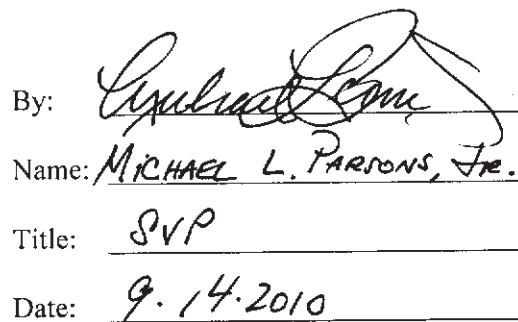 By:
Name: MICHAEL L. PARSONS, JR.
Title: SVP
Date: 9.14.2010